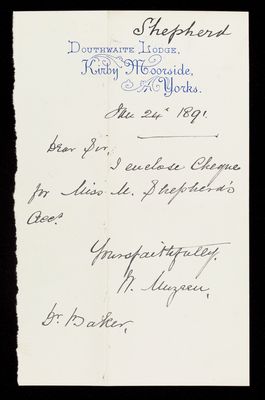 Shepherd
Douthwaite Lodge,
Kirby Moorside,
Yorks.
Jan 24th 1891.
Dear Sir,
I enclose Cheque
for Miss M. Shepherd's
Acct.
Yours faithfully,
Dr. Baker.